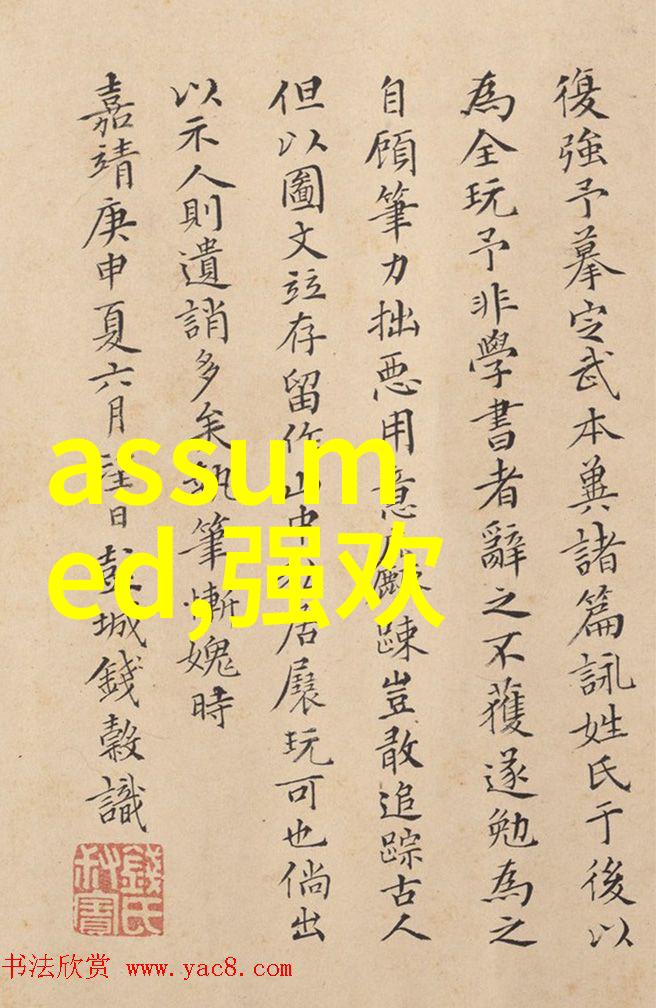 復強予摹定武本兼諸篇詠姓氏于後以
為全玩予非學書者辭之不獲遂勉為之
自顧筆力拙惡用意疎豈敢追踪古人
但以圖文並存留作山中居展玩可也倘出
以示人則遺誚多矣執筆慚媿時
嘉靖庚申夏六月望日彭城錢穀識
錢氏
assum
ed,强欢
书法欣赏 www.yac8.com